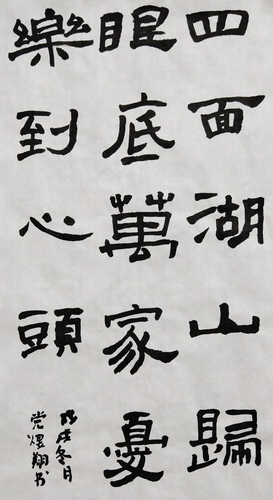 四面湖山歸
眼底萬家憂
樂到心頭
戊戌冬月
党翔书